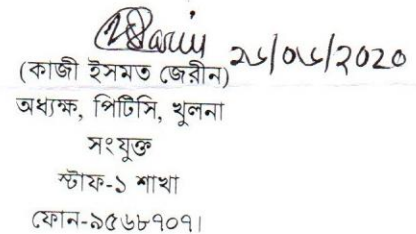 ২৬/০৬/২০২০
(কাজী ইসমত জেরীন)
অধ্যক্ষ, পিটিসি, খুলনা
সংযুক্ত
স্টাফ-১ শাখা
ফোন-৯৫৬৮৭০৭।